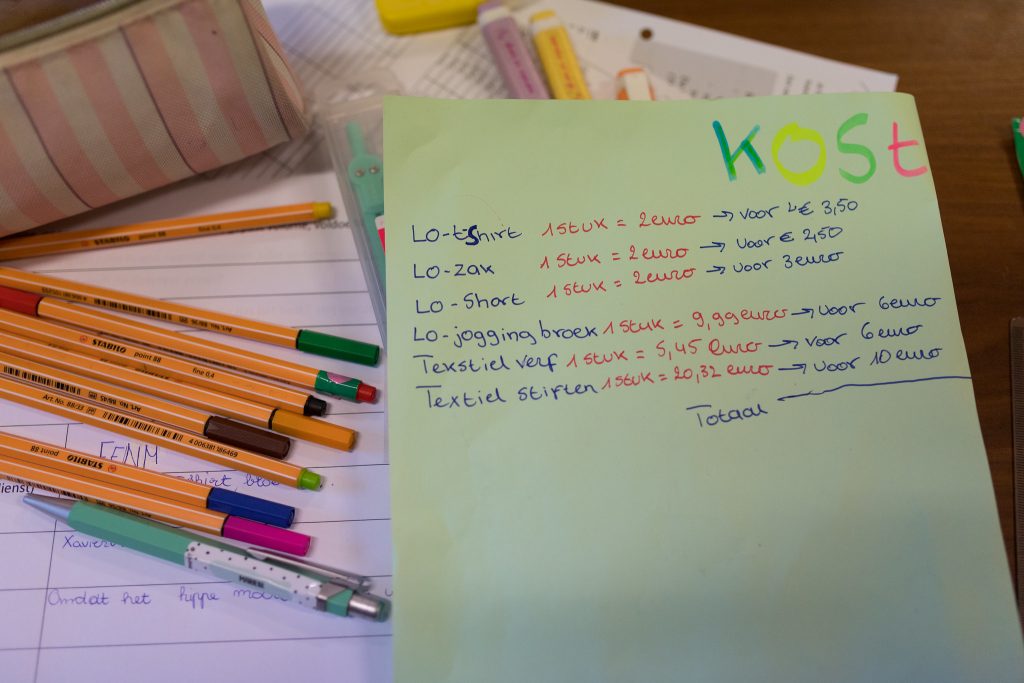 KOST
LO-tshirt 1 stuk = 2 euro → voor € 3,50
LO-zak 1 stuk = 2 euro → voor € 2,50
LO-short 1 stuk = 2 euro → voor 3 euro
LO-joggingbroek 1 stuk = 9,99 euro → voor 6 euro
Texstiel verf 1 stuk = 5,45 euro → voor 6 euro
Textiel stiften 1 stuk = 20,32 euro → voor 10 euro
Totaal
STABILO point 88 fine 0,4
STABILO point 88 fine 0,4
Art.No. 88/33 4 006381 186469
STABILO point 88
dienst)
Omdat het hippe